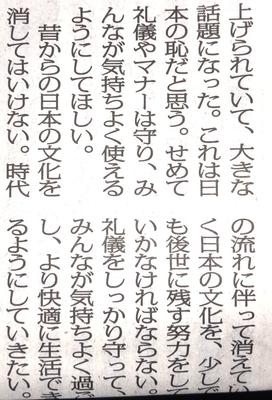 上げられていて、大きな
話題になった。これは日
本の恥だと思う。せめて
礼儀やマナーは守り、み
んなが気持ちよく使える
ようにしてほしい。
昔からの日本の文化を
消してはいけない。時代
の流れに伴って消えてい
く日本の文化を、少しで
も後世に残す努力をして
いかなければならない。
礼儀をしっかり守って、
みんなが気持ちよく過ご
し、より快適に生活でき
るようにしていきたい。